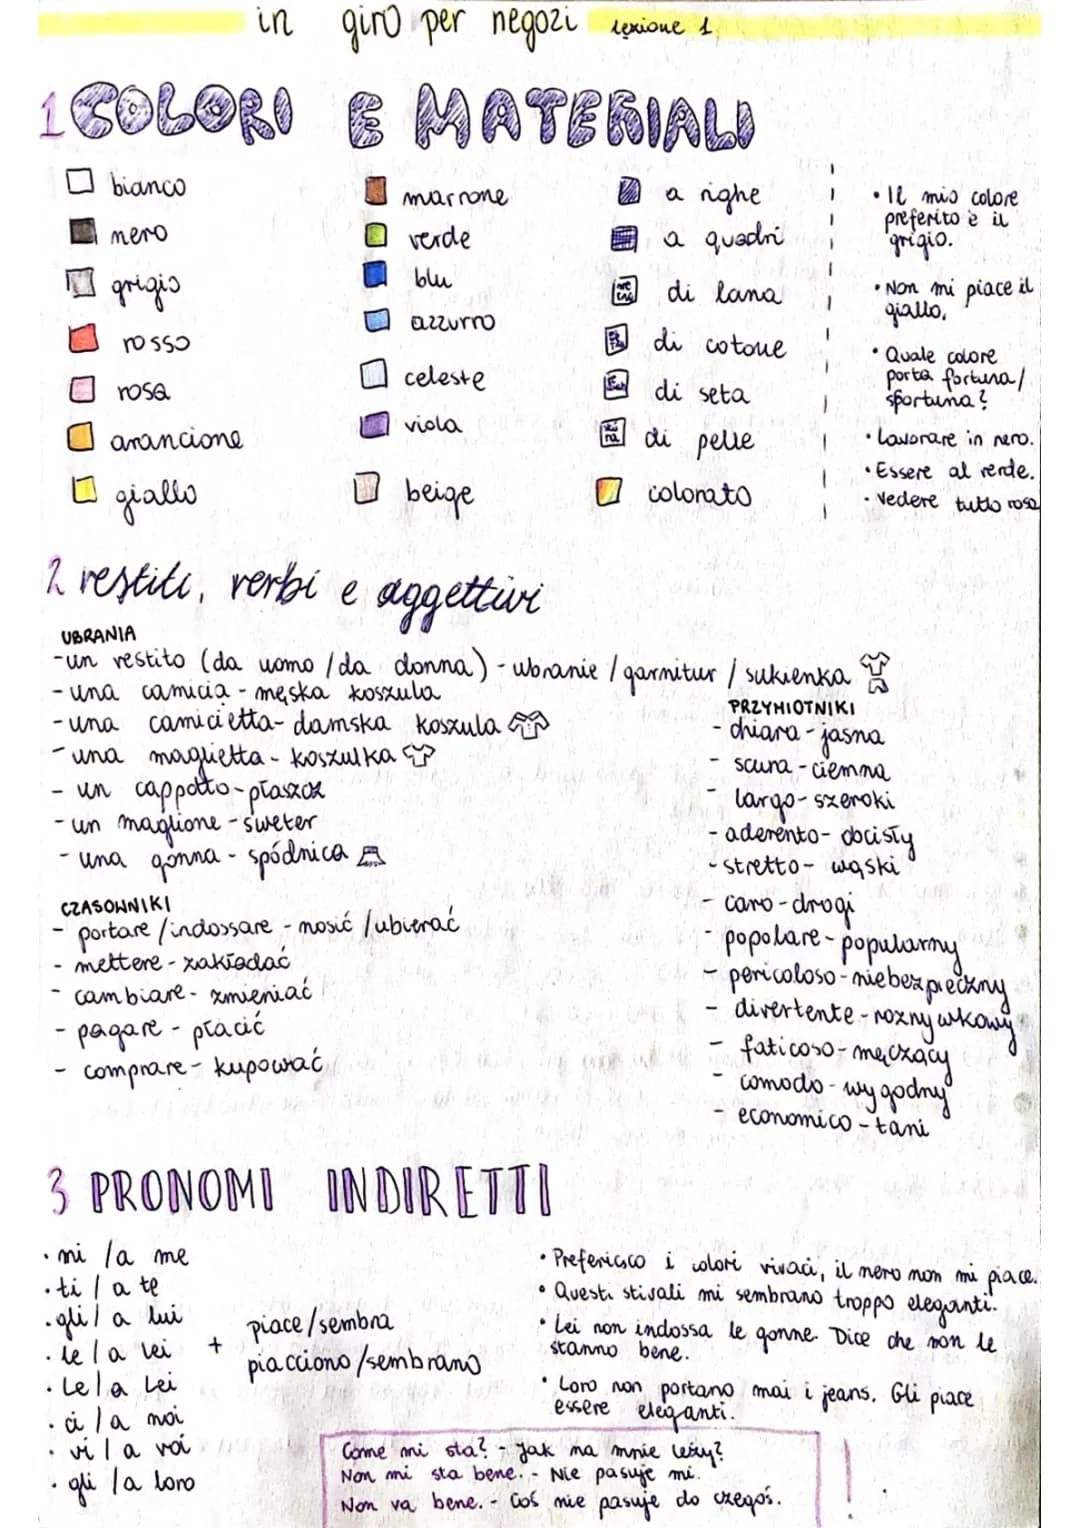 in giro per negozi lezione 1
1 COLORI E MATERIALI
bianco
nero
grigio
rosso
rosa
arancione
giallo
marrone
verde
blu
azzurro
celeste
viola
beige
a righe
a quadri
di lana
di cotone
di seta
di pelle
colorato
• Il mio colore
preferito è il
grigio.
• Non mi piace il
giallo.
• Quale colore
porta fortuna/
sfortuna?
• Lavorare in nero.
• Essere al verde.
• Vedere tutto rosa
2 vestiti, verbi e aggettivi
UBRANIA
- un vestito (da uomo / da donna) - ubranie / garnitur / sukienka
- una camicia - męska koszula
- una camicietta - damska koszula
- una maglietta - koszulka
- un cappotto - płaszcz
- un maglione - sweter
- una gonna - spódnica
CZASOWNIKI
- portare / indossare - nosić / ubierać
- mettere - zakładać
- cambiare - zmieniać
- pagare - płacić
- comprare - kupować
PRZYMIOTNIKI
- chiara - jasna
- scura - ciemna
- largo - szeroki
- aderento - obcisły
- stretto - wąski
- caro - drogi
- popolare - popularny
- pericoloso - niebezpieczny
- divertente - rozrywkowy
- faticoso - męczący
- comodo - wygodny
- economico - tani
3 PRONOMI INDIRETTI
• mi / a me
• ti / a te
• gli / a lui
• le / a lei
• Le / a Lei
• ci / a noi
• vi / a voi
• gli / a loro
+
piace / sembra
piacciono / sembrano
• Preferisco i colori vivaci, il nero non mi piace.
• Questi stivali mi sembrano troppo eleganti.
• Lei non indossa le gonne. Dice che non le
stanno bene.
• Loro non portano mai i jeans. Gli piace
essere eleganti.
Come mi sta? - Jak na mnie leży?
Non mi sta bene. - Nie pasuje mi.
Non va bene. - Coś nie pasuje do czegoś.
!